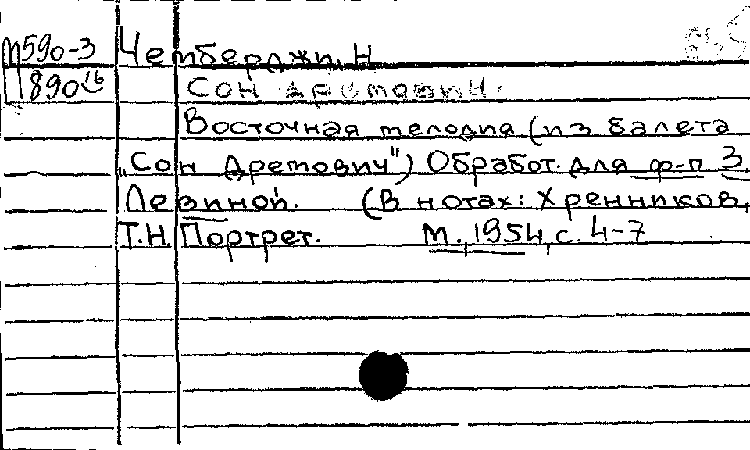 М590-3 Чемберджи, Н
П890 16 Сон Дремович.
Восточная мелодия (из балета
„Сон Дремович") Обработ. для ф-п З.
Левиной. (В нотах: Хренников,
Т.Н. Портрет. М., 1954, с. 4-7